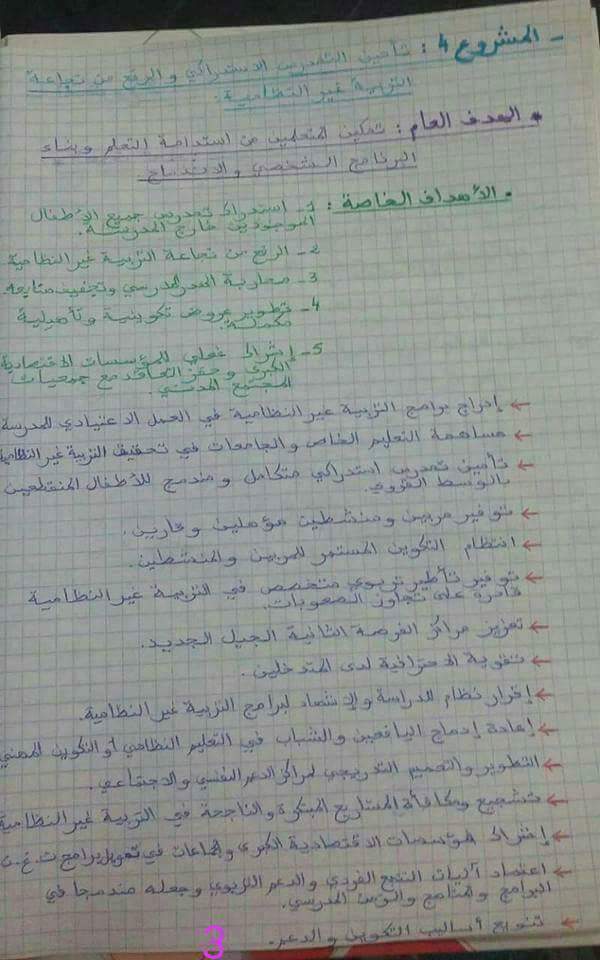 - المشروع 4 : تأمين التمدرس الاستدراكي والرفع من نجاعة
التربية غير النظامية.
* الهدف العام : تمكين المتعلمين من استدامة التعلم وبناء
البرنامج الشخصي والاندماج.
• الأهداف الخاصة : 1- استدراك تمدرس جميع الأطفال
الموجودين خارج المدرسة.
2- الرفع من نجاعة التربية غير النظامية
3- محاربة الهدر المدرسي وتجفيف منابعه.
4- تطوير عروض تكوينية وتأهيلية
مكملة.
5- إشراك فعلي للمؤسسات الاقتصادية
الكبرى وحفز التعاقد مع جمعيات
المجتمع المدني.
← إدراج برامج التربية غير النظامية في العمل الاعتيادي للمدرسة
← مساهمة التعليم الخاص والجامعات في تحقيق التربية غير النظامية
← تأمين تمدرس استدراكي متكامل ومندمج للأطفال المنقطعين
بالوسط القروي.
← توفير مربين ومنشطين مؤهلين وقارين.
← انتظام التكوين المستمر للمربين والمنشطين.
← توفير تأطير تربوي متخصص في التربية غير النظامية
قادرة على تجاوز الصعوبات.
← تعزيز مراكز الفرصة الثانية الجيل الجديد.
← تقوية الاحترافية لدى المتدخلين.
← إقرار نظام للدراسة والإشهاد لبرامج التربية غير النظامية.
← إعادة إدماج اليافعين والشباب في التعليم النظامي أو التكوين المهني
← التطوير والتعميم التدريجي لمراكز الدعم النفسي والاجتماعي.
← تشجيع ومكافأة المشاريع المبتكرة والناجحة في التربية غير النظامية
← إشراك المؤسسات الاقتصادية الكبرى والجماعات في تمويل برامج ت.غ.ن
← اعتماد آليات التتبع الفردي والدعم التربوي وجعله مندمجا في
البرامج والمناهج والزمن المدرسي.
← تنويع أساليب التكوين والدعم.
3